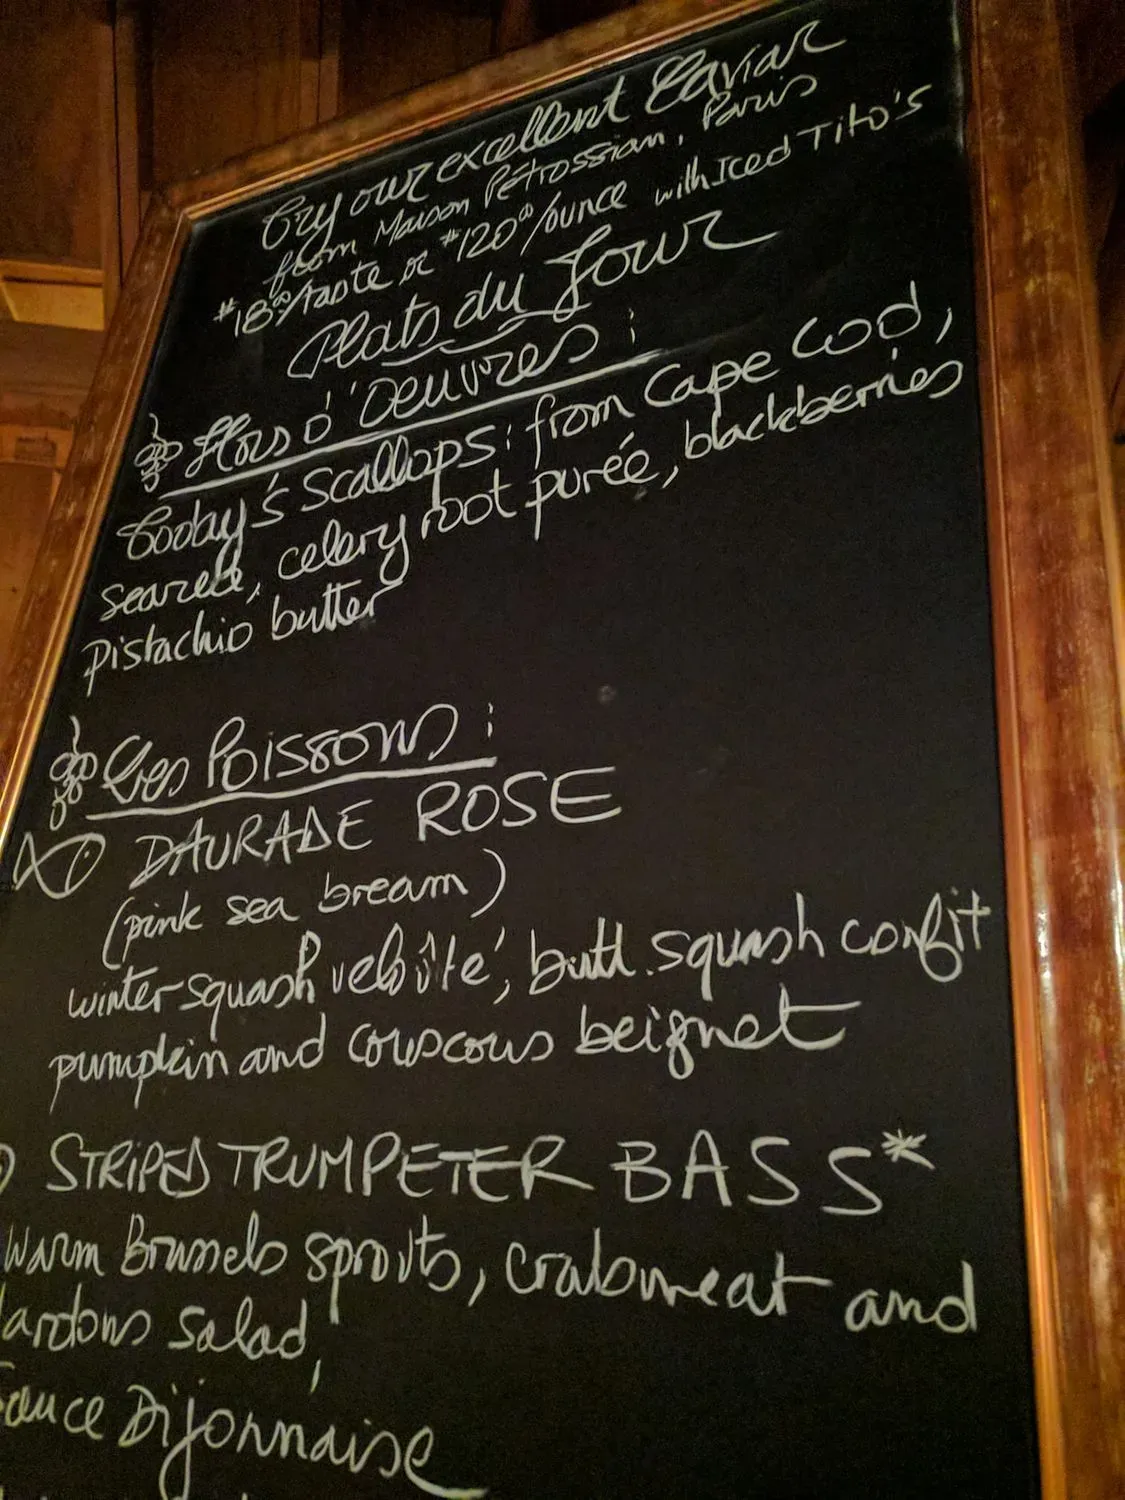 Try our excellent Caviar
from Maison Petrossian, Paris
$18⁰⁰/taste or $120⁰⁰/ounce with Iced Tito's
Plats du Jour
Hors d'oeuvres:
Today's Scallops: from Cape Cod,
seared, celery root purée, blackberries
pistachio butter
Les Poissons:
DAURADE ROSE
(pink sea bream)
winter squash veloûté, butt. squash confit
pumpkin and couscous beignet
STRIPED TRUMPETER BASS*
warm Brussels sprouts, crabmeat and
lardons salad,
Sauce Dijonnaise